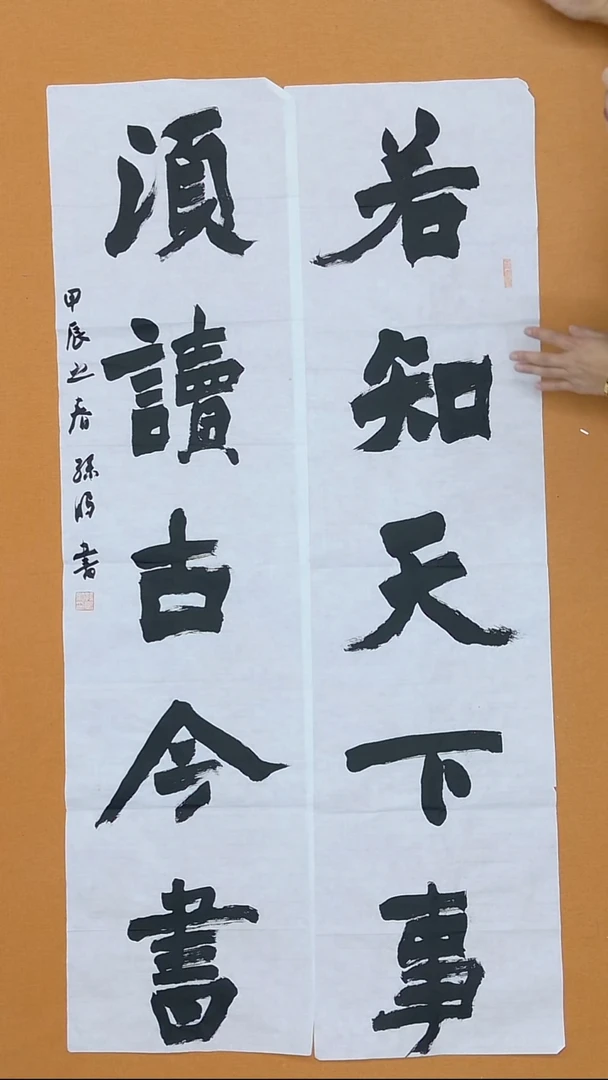 若知天下事
須讀古今書
甲辰之春 孫
書